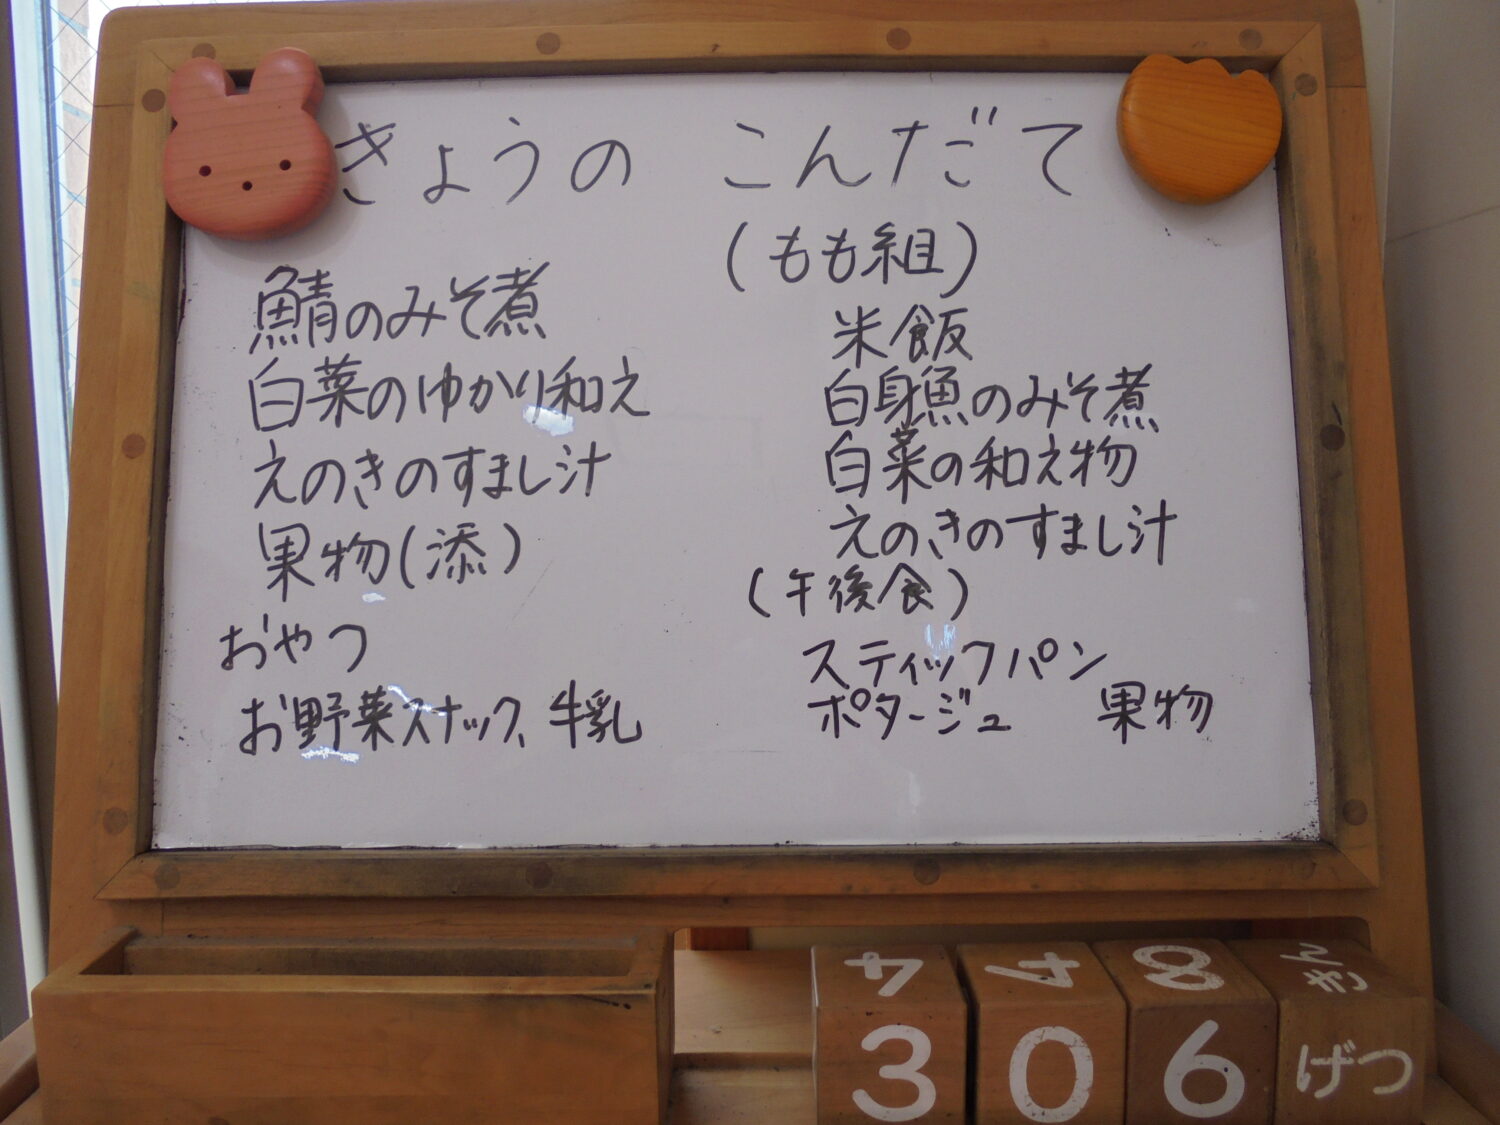 きょうの こんだて
鯖のみそ煮
白菜のゆかり和え
えのきのすまし汁
果物(添)
おやつ
お野菜スナック、牛乳
(もも組)
米飯
白身魚のみそ煮
白菜の和え物
えのきのすまし汁
(午後食)
スティックパン
ポタージュ 果物
4 4 8 きん
3 0 6 げつ